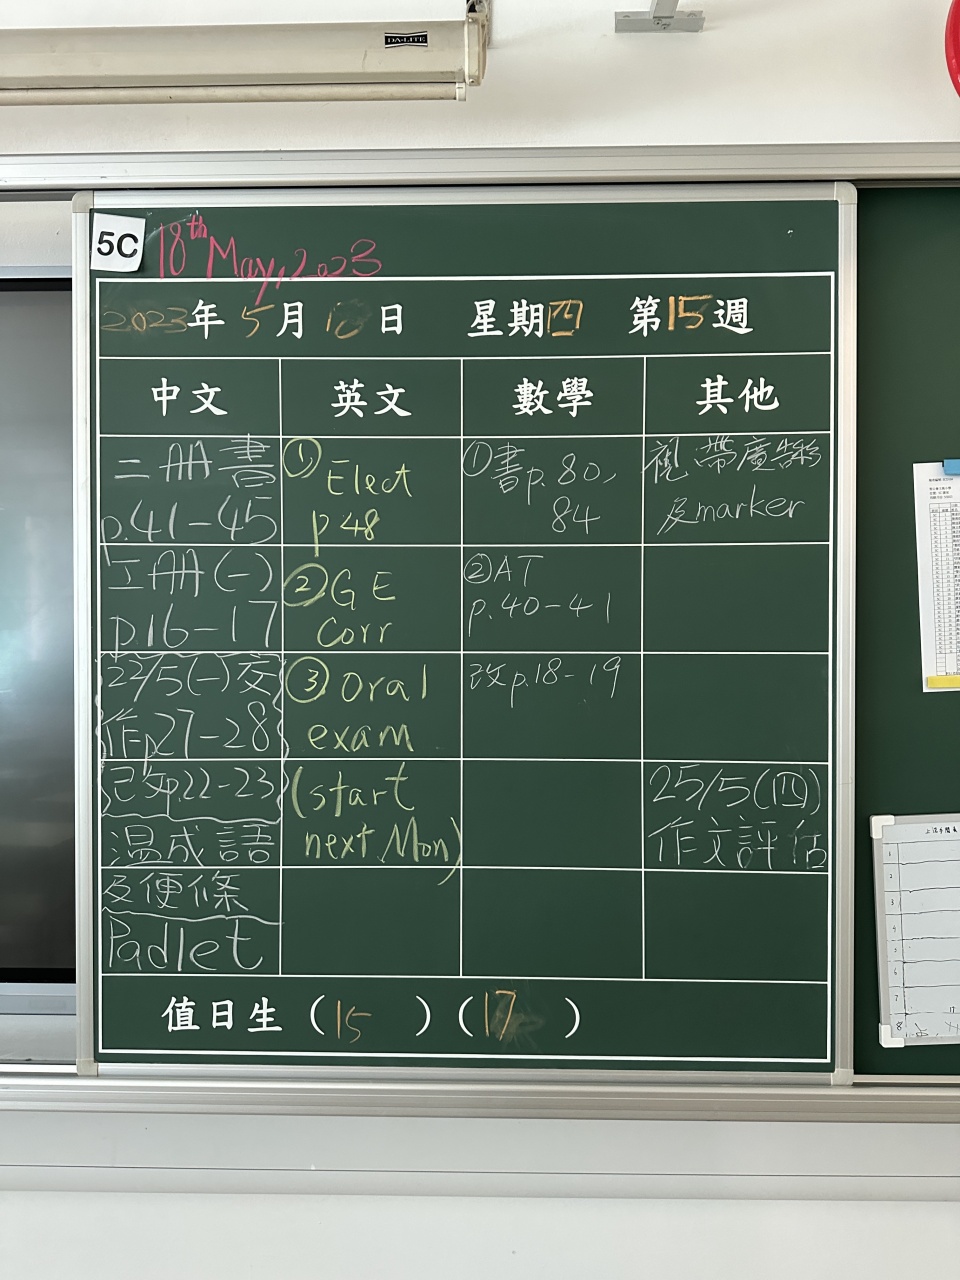 DA-LITE
5C
18th May, 2023
2023年 5月 18日 星期四 第15週
中文
英文
數學
其他
二冊書
p.41-45
工冊(一)
p.16-17
22/5(一)交
作p27-28
p.22-23
溫成語
及便條
Padlet
① Elect
p.48
② GE
Corr
③ Oral
exam
(start
next Mon)
①書p.80,
84
②AT
p.40-41
改p.18-19
視:帶廣告彩
及marker
25/5(四)
作文評估
值日生 (15) (17)